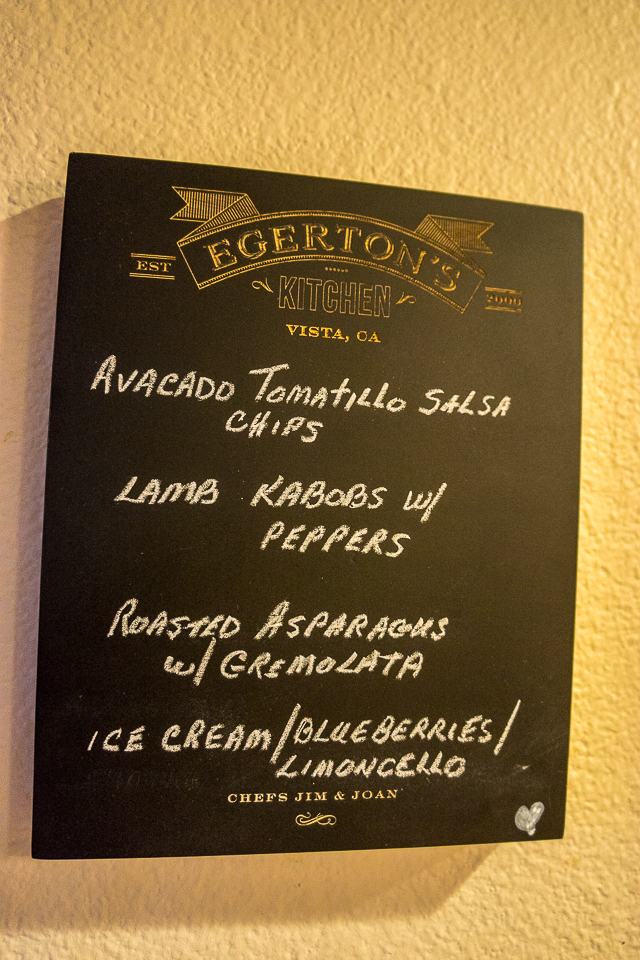 EGERTON'S
EST
KITCHEN
2000
VISTA, CA
AVACADO TOMATILLO SALSA
CHIPS
LAMB KABOBS W/
PEPPERS
ROASTED ASPARAGUS
W/ GREMOLATA
ICE CREAM/BLUEBERRIES/
LIMONCELLO
CHEFS JIM & JOAN